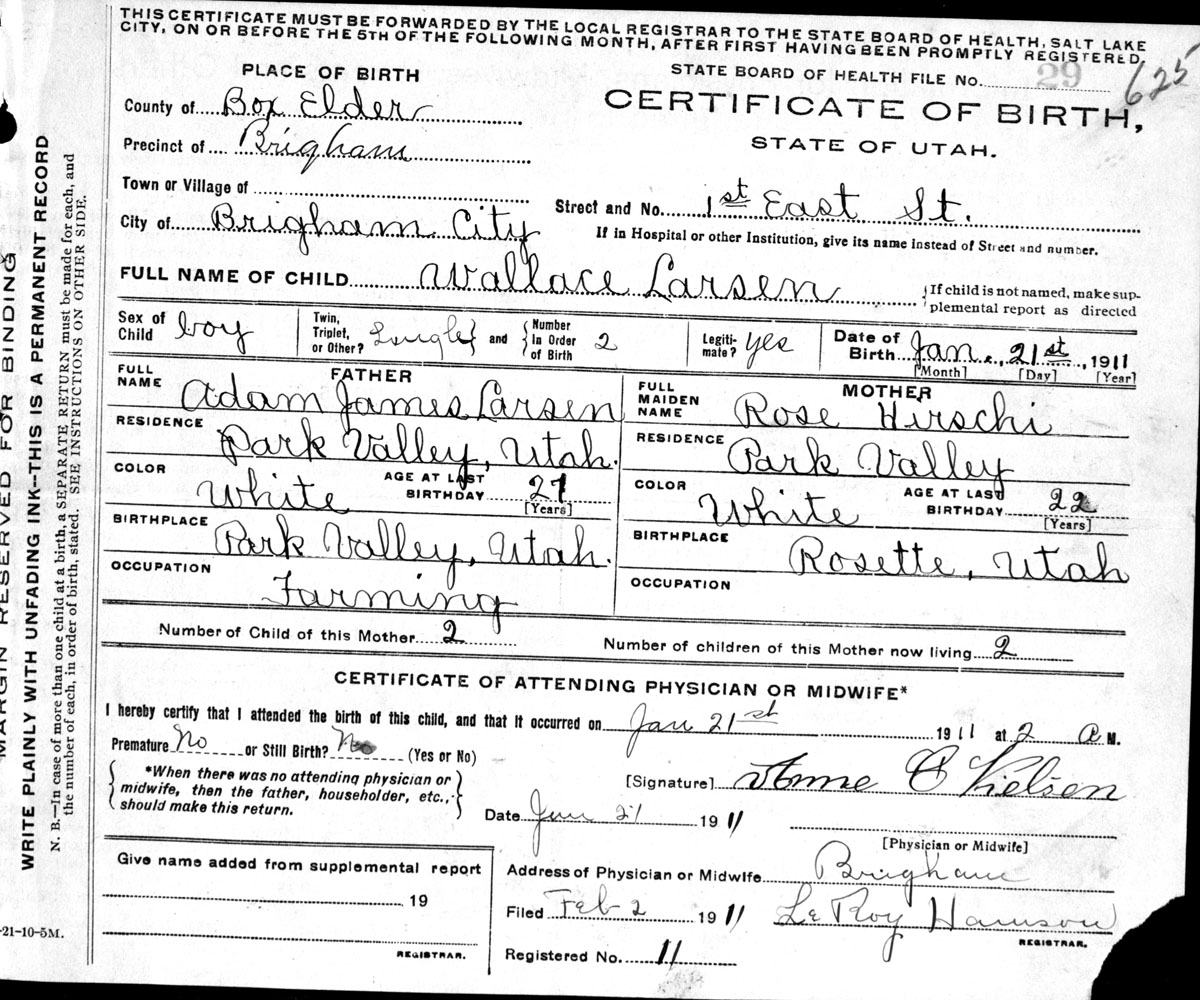 THIS CERTIFICATE MUST BE FORWARDED BY THE LOCAL REGISTRAR TO THE STATE BOARD OF HEALTH, SALT LAKE
CITY, ON OR BEFORE THE 5TH OF THE FOLLOWING MONTH, AFTER FIRST HAVING BEEN PROMPTLY REGISTERED.
PLACE OF BIRTH
STATE BOARD OF HEALTH FILE No. 29 625
County of Box Elder
CERTIFICATE OF BIRTH,
Precinct of Brigham
STATE OF UTAH.
Town or Village of
Street and No. 1st East St.
City of Brigham City
If in Hospital or other Institution, give its name instead of Street and number.
FULL NAME OF CHILD Wallace Larsen
{If child is not named, make sup-
plemental report as directed
Sex of Child boy
Twin, Triplet, or Other? Single} and {Number In Order of Birth 2
Legiti-mate? yes
Date of Birth Jan. 21st, 1911
[Month] [Day] [Year]
FATHER
FULL NAME Adam James Larsen
RESIDENCE Park Valley, Utah.
COLOR White AGE AT LAST BIRTHDAY 27 [Years]
BIRTHPLACE Park Valley, Utah.
OCCUPATION Farming
MOTHER
FULL MAIDEN NAME Rose Hirschi
RESIDENCE Park Valley
COLOR White AGE AT LAST BIRTHDAY 22 [Years]
BIRTHPLACE Rosette, Utah
OCCUPATION
Number of Child of this Mother 2
Number of children of this Mother now living 2
CERTIFICATE OF ATTENDING PHYSICIAN OR MIDWIFE*
I hereby certify that I attended the birth of this child, and that it occurred on Jan 21st 1911 at 2 A M.
Premature No or Still Birth? No (Yes or No)
{*When there was no attending physician or
midwife, then the father, householder, etc.,
should make this return.}
[Signature] Anne C Nielsen
Date Jan 21 1911
[Physician or Midwife]
Give name added from supplemental report
19
REGISTRAR.
Address of Physician or Midwife Brigham
Filed Feb 2 1911 LeRoy Harrison
REGISTRAR.
Registered No. 11
-21-10-5M.
MARGIN RESERVED FOR BINDING
WRITE PLAINLY WITH UNFADING INK--THIS IS A PERMANENT RECORD
N. B.—In case of more than one child at a birth, a SEPARATE RETURN must be made for each, and
the number of each, in order of birth, stated. SEE INSTRUCTIONS ON OTHER SIDE.